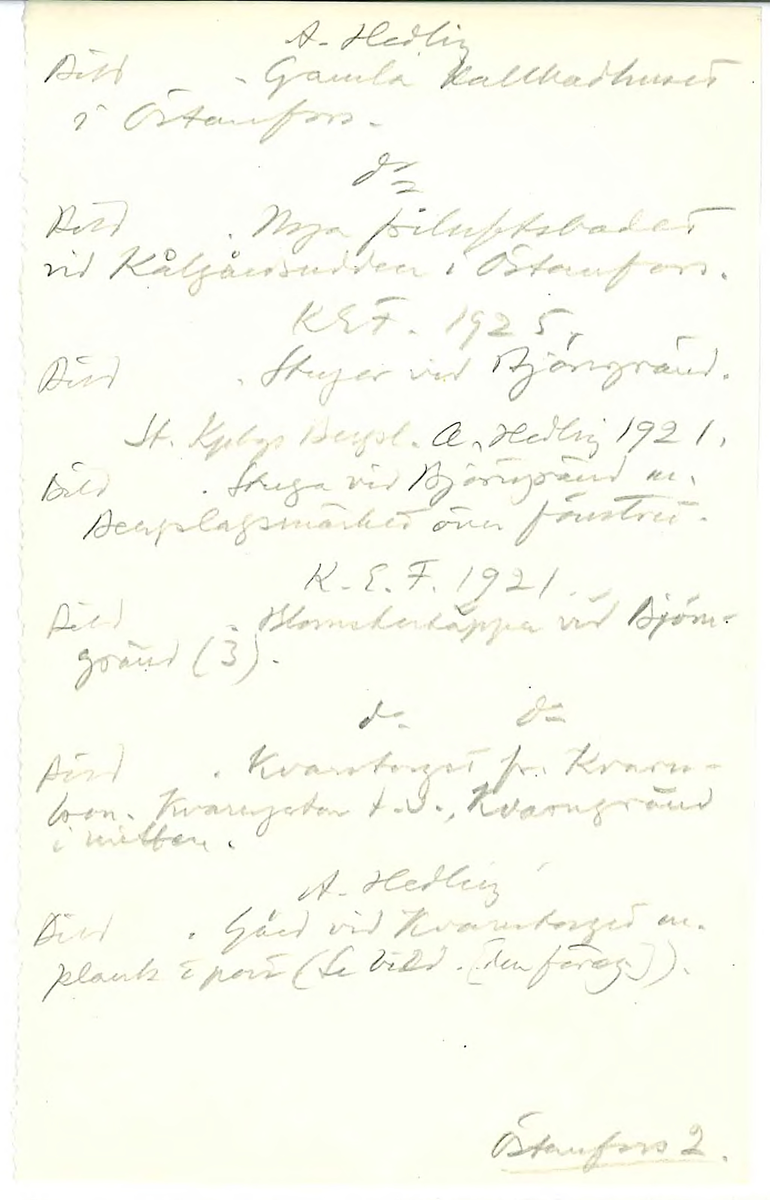 A. Hedling
Bild . Gamla Kallbadhuset
i Östanfors.
do
Bild . Nya friluftsbadet
vid Kålgårdsudden i Östanfors.
K E F. 1925.
Bild . Stugor vid Björngränd.
St. Kpbgs Bergsl. A. Hedling 1921.
Bild . Stuga vid Björngränd m.
Bergslagsmärket över fönstret.
K. E. F. 1921.
Bild . Blomstertäppa vid Björn-
gränd (3).
do do
Bild . Kvarntorget fr. Kvarn-
bron. Kvarngatan t.v., Kvarngränd
i mitten.
A. Hedling
Bild . Gård vid Kvarntorget m.
plank o port (Se bild . [den föreg.]).
Östanfors 2.